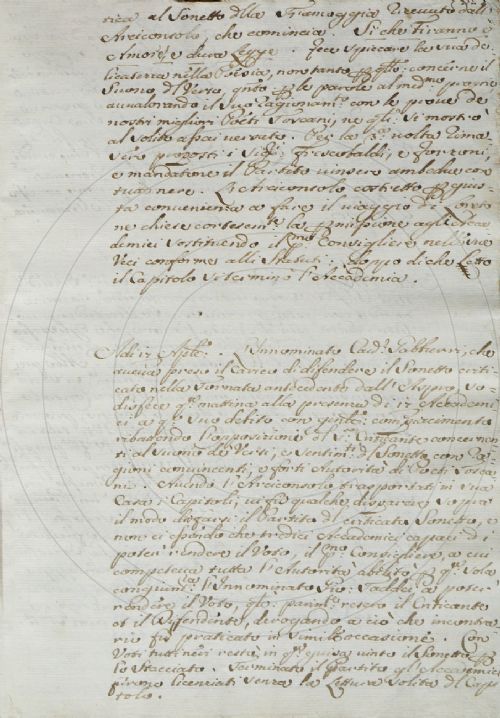 tica al Sonetto dlla Tramoggia ricevuto dall'
Arciconsolo, che comincia. Si che Tiranno è
Amore, e dura Legge. Fece spiccare la sua de-
licatezza nella Poesia, non tanto p qllo concerne il
Suono del Verso, qnto p le parole al medmo proprie
avvalorando il suo Ragionamto con le prove de
nostri migliori Poeti Toscani, ne qli si mostrò
al solito assai versato. Per la pa volta
proposti i Sigi Frescobaldi, e Forzoni,
e mandatone il Partito vinsero ambedue con
tutte nere. L'Arciconsolo costretto p
ta convenienza a fare il viaggio di
ne chiese cortesemte la pmissione agli Acca
demici sostituendo il pmo Consigliere nelle sue
Veci conforme alli Statuti. Doppo di che Letto
il Capitolo si terminò l'Accademia.
Adi 12 Aple. L'Innominato Cavre Gabburri, che
aveva preso il Carico di difendere il Sonetto criti-
cato nella tornata antecedente dall' so-
disfece qta mattina alla presenza di 12 Accademi-
ci a qto suo debito con
ributtando l'opposizione del Sr Criticante concernen-
ti al suono de Versi, e sentimti dl Sonetto con Ra-
gioni convincenti, e forti Autorità di Poeti Tosca-
ni. Avendo l'Arciconsolo trasportati in sua
Casa i Capitoli, vi fù qualche disparere sopra
il modo di farsi il Partito del criticato Sonetto, e
non ci essendo che tredici Accademici capaci di
poter rendere il Voto, il pmo Consigliere, a cui
competeva tutta l'Autorità abilitò p qta Vola
l'Innominato Gio: Taddei a poter
rendere il Voto, qle parimte resero il Criticante
et il Difendente, derogando a ciò che in contra-
rio fù praticato in simili occasione. Con
Voti tutti neri restò in qta guisa vinto il Sonetto
lo Stacciato. Terminato il Partito gli Accademici
furono licenziati senza la Lettura solita del Capi-
tolo.